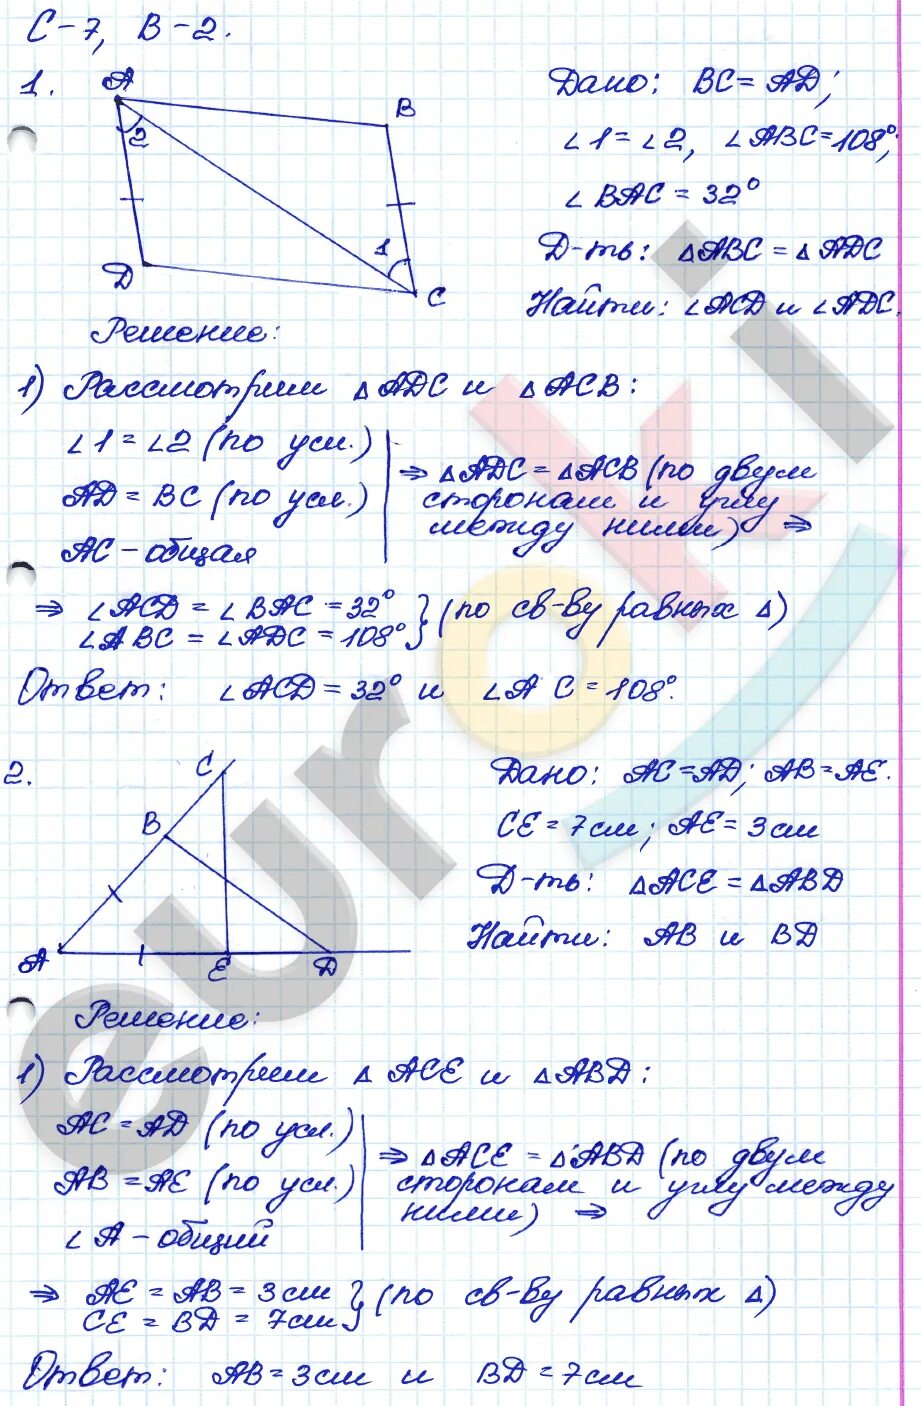 С-7, В-2.
1.
A
B
2
1
D
C
Дано: BC = AD;
∠1 = ∠2, ∠ABC = 108°;
∠BAC = 32°
Д-ть: △ABC = △ADC
Найти: ∠ACD и ∠ADC.
Решение:
1) Рассмотрим △ADC и △ACB:
∠1 = ∠2 (по усл.)
AD = BC (по усл.)
AC - общая
⇒ △ADC = △ACB (по двум
сторонам и углу
между ними) ⇒
⇒ ∠ACD = ∠BAC = 32°
∠ABC = ∠ADC = 108° } (по св-ву равных △)
Ответ: ∠ACD = 32° и ∠A C = 108°.
2.
C
B
A
E
D
Дано: AC = AD; AB = AE.
CE = 7см; AE = 3см
Д-ть: △ACE = △ABD
Найти: AB и BD
Решение:
1) Рассмотрим △ACE и △ABD:
AC = AD (по усл.)
AB = AE (по усл.)
∠A - общий
⇒ △ACE = △ABD (по двум
сторонам и углу между
ними) ⇒
⇒ AE = AB = 3см
CE = BD = 7см } (по св-ву равных △)
Ответ: AB = 3см и BD = 7см
euroki